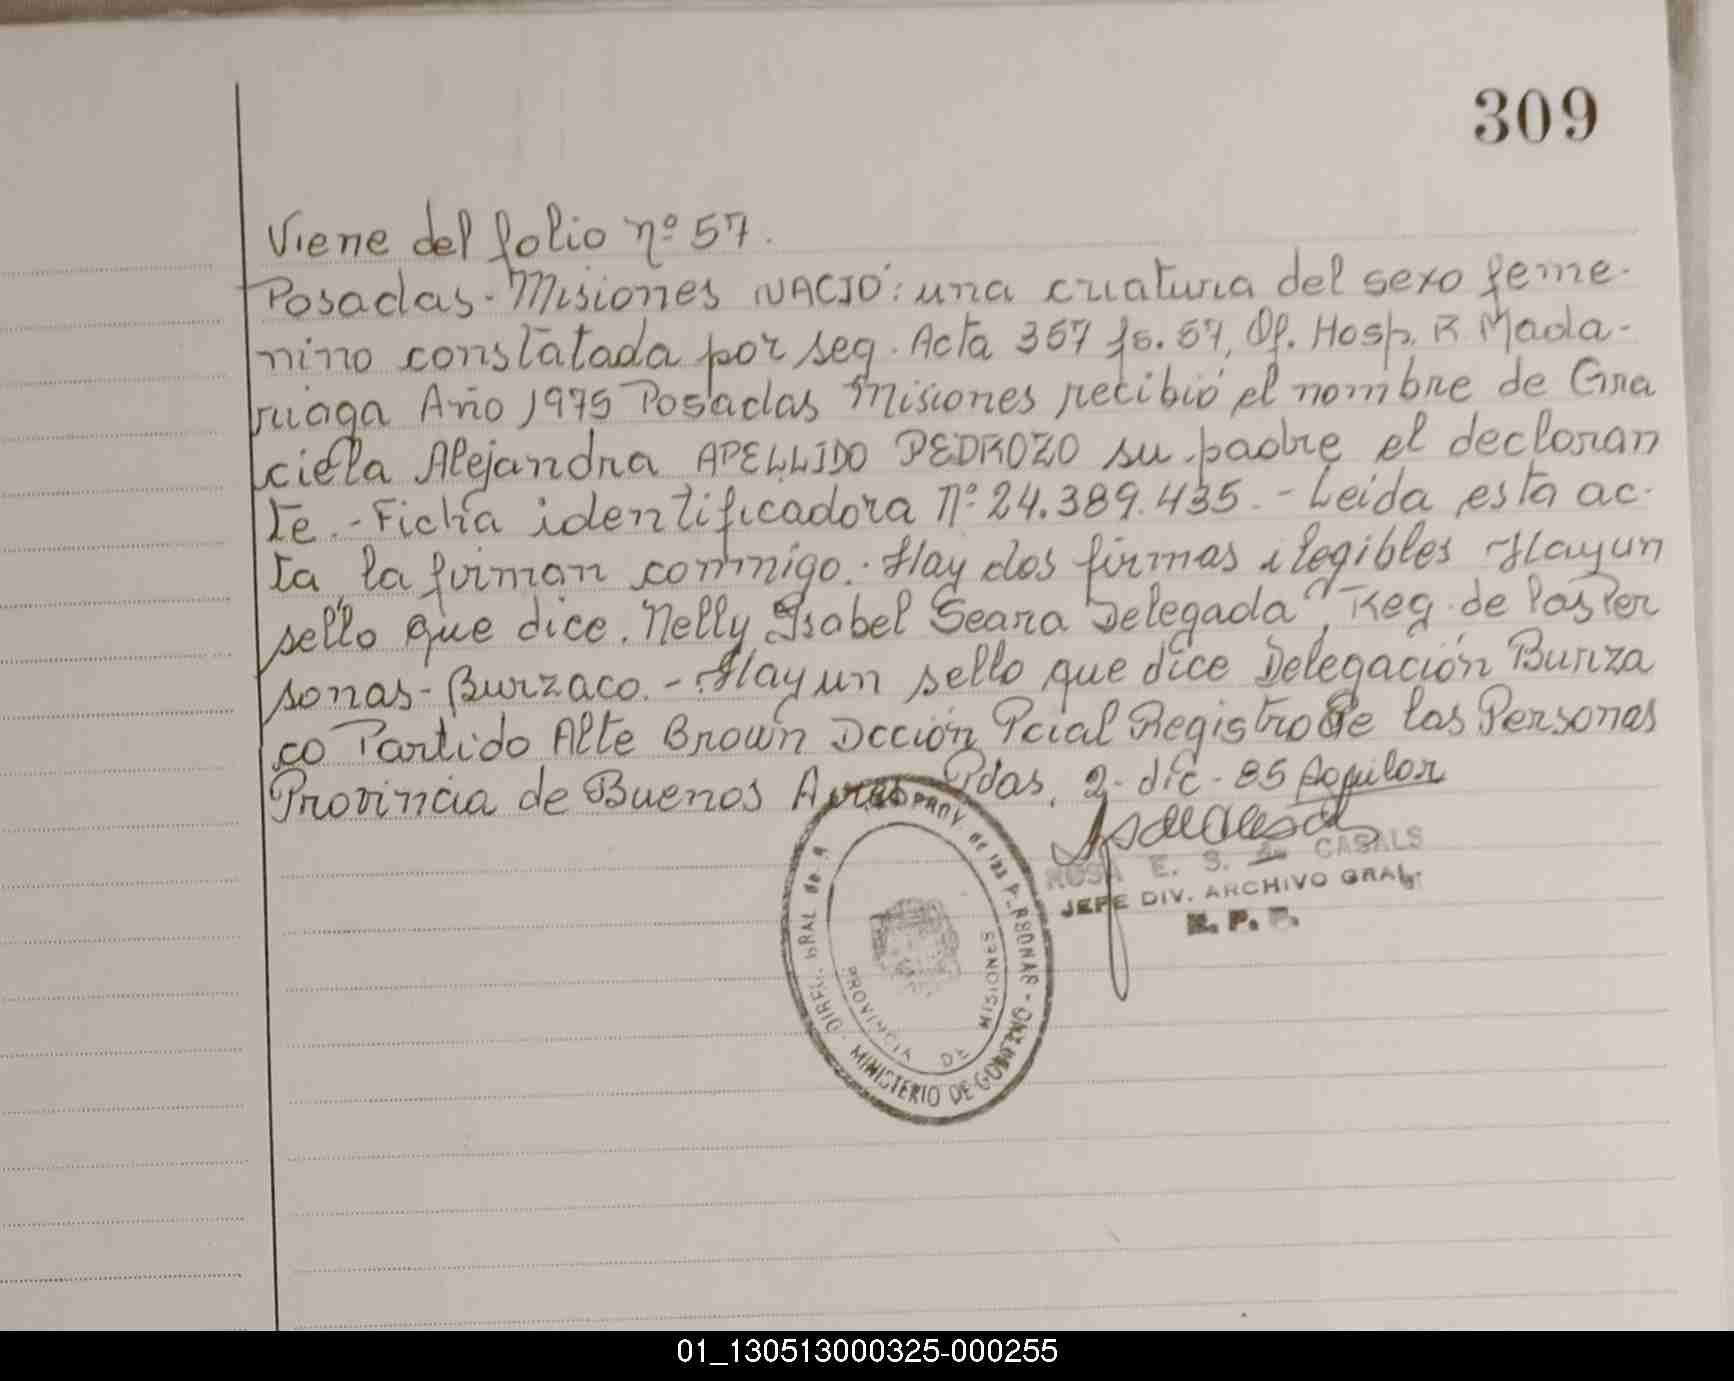 309
Viene del folio nº 57.
Posadas - Misiones NACIÓ: una criatura del sexo feme-
nino constatada por seg. Acta 357 fs. 57, Of. Hosp. R Mada-
riaga Año 1975 Posadas Misiones recibió el nombre de Gra
ciela Alejandra APELLIDO PEDROZO su padre el declaran
te.- Ficha identificadora Nº 24.389.435.- Leida esta ac-
ta, la firman conmigo.- Hay dos firmas ilegibles - Hay un
sello que dice. Nelly Isabel Seara Delegada, Reg. de las Per
sonas - Burzaco.- Hay un sello que dice Delegación Burza
co Partido Alte Brown Dcción Pcial Registro de las Personas
Provincia de Buenos Aires Pdas. 2 - dic - 85 Aguilar
ROSA E. S. de CASALS
JEFE DIV. ARCHIVO GRAL.
R. P. P.
PROV. de las PERSONAS - MINISTERIO DE GOBIERNO
PROVINCIA DE MISIONES
01_130513000325-000255